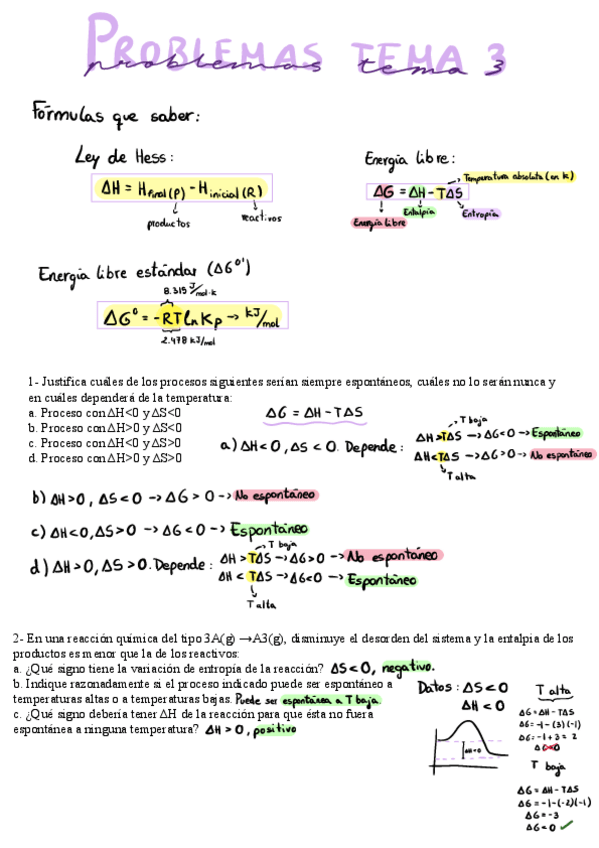 PROBLEMAS TEMA 3
problemas tema 3
Fórmulas que saber:
Ley de Hess:
ΔH = H final (P) - H inicial (R)
productos
reactivos
Energía libre:
Temperatura absoluta (en K)
ΔG = ΔH - TΔS
Energía libre
Entalpía
Entropía
Energía libre estándar (ΔG°')
8.315 J/mol·K
ΔG° = -RT ln Kp → kJ/mol
2.478 kJ/mol
1- Justifica cuáles de los procesos siguientes serían siempre espontáneos, cuáles no lo serán nunca y
en cuáles dependerá de la temperatura:
a. Proceso con ΔH<0 y ΔS<0
b. Proceso con ΔH>0 y ΔS<0
c. Proceso con ΔH<0 y ΔS>0
d. Proceso con ΔH>0 y ΔS>0
ΔG = ΔH - TΔS
a) ΔH < 0, ΔS < 0. Depende:
T baja
ΔH > TΔS → ΔG < 0 → Espontáneo
ΔH < TΔS → ΔG > 0 → No espontáneo
T alta
b) ΔH > 0, ΔS < 0 → ΔG > 0 → No espontáneo
c) ΔH < 0, ΔS > 0 → ΔG < 0 → Espontáneo
d) ΔH > 0, ΔS > 0. Depende:
T baja
ΔH > TΔS → ΔG > 0 → No espontáneo
ΔH < TΔS → ΔG < 0 → Espontáneo
T alta
2- En una reacción química del tipo 3A(g) → A3(g), disminuye el desorden del sistema y la entalpia de los
productos es menor que la de los reactivos:
a. ¿Qué signo tiene la variación de entropía de la reacción? ΔS < 0, negativo.
b. Indique razonadamente si el proceso indicado puede ser espontáneo a
temperaturas altas o a temperaturas bajas. Puede ser espontánea a T baja.
c. ¿Qué signo debería tener ΔH de la reacción para que ésta no fuera
espontánea a ninguna temperatura? ΔH > 0, positivo
Datos: ΔS < 0
ΔH < 0
ΔH < 0
T alta
ΔG = ΔH - TΔS
ΔG = -1 - (3)(-1)
ΔG = -1 + 3 = 2
T baja
ΔG = ΔH - TΔS
ΔG = -1 - (-2)(-1)
ΔG = -3
ΔG < 0 ✓